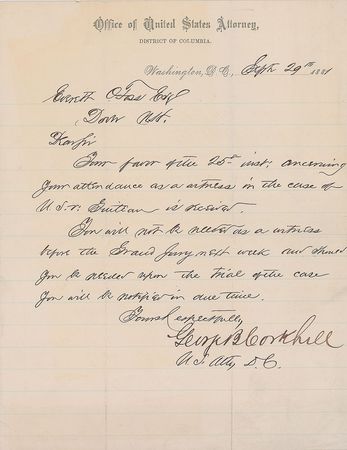 Office of United States Attorney,
DISTRICT OF COLUMBIA.
Washington, D.C., Sept 29th 1881
Everett O Foss Esq
Dover N.H.
Dear Sir
Your favor of the 28th inst. concerning
your attendance as a witness in the case of
U.S. v. Guiteau is received.
You will not be needed as a witness
before the Grand Jury next week and should
you be needed upon the trial of the case
you will be notified in due time.
Yours respectfully,
George B Corkhill
U.S. Atty D.C.